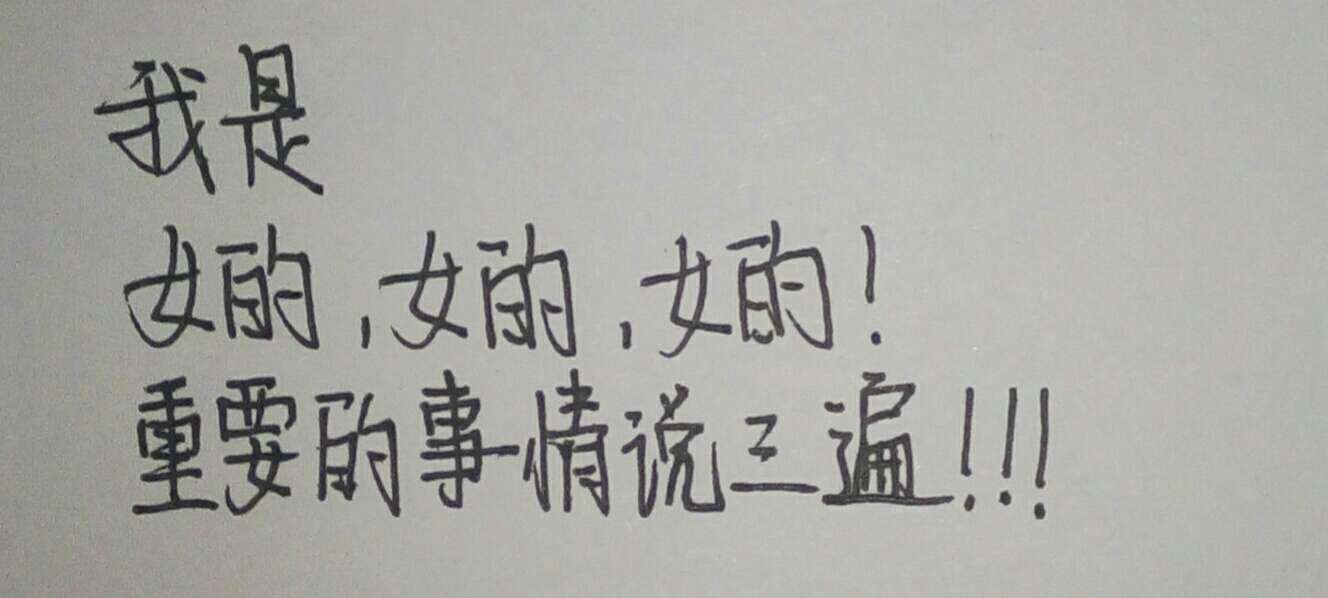 我是
女的,女的,女的!
重要的事情说三遍!!!